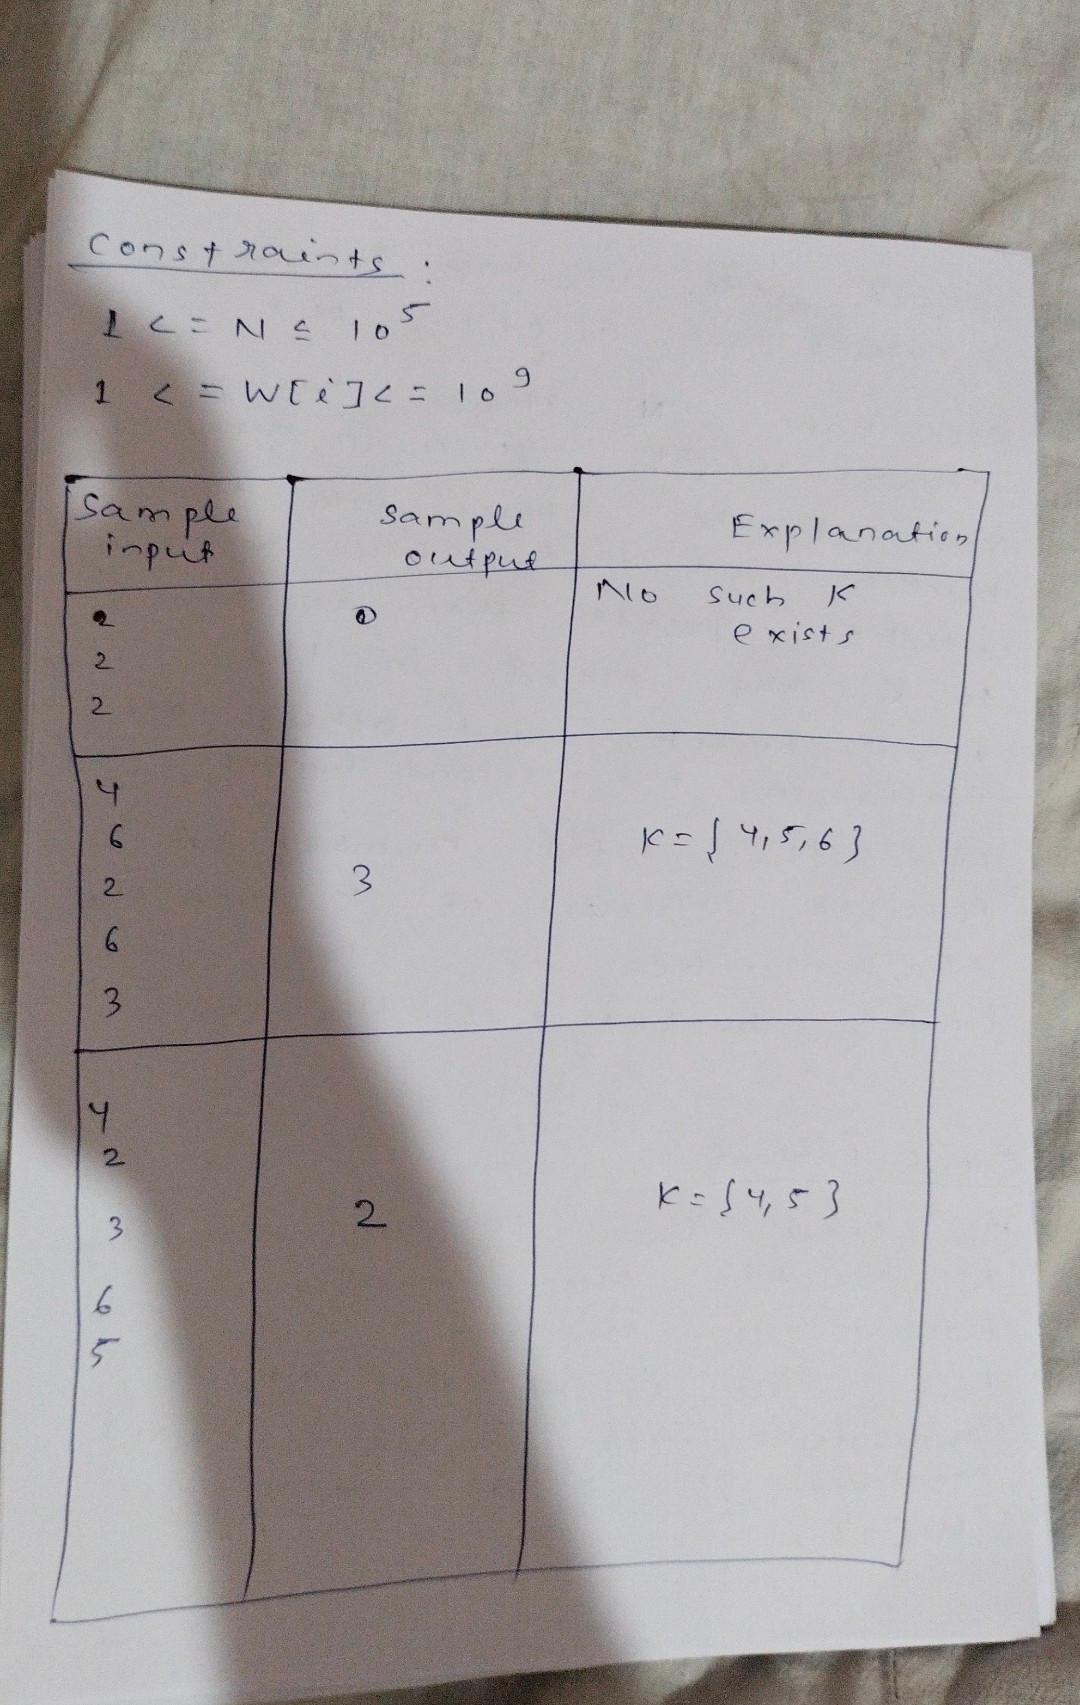 Constraints :
1 <= N ≤ 10^5
1 <= W[i] <= 10^9
Sample input
Sample output
Explanation
2
2
2
0
No such K
exists
4
6
2
6
3
3
K = { 4, 5, 6 }
4
2
3
6
5
2
K = { 4, 5 }